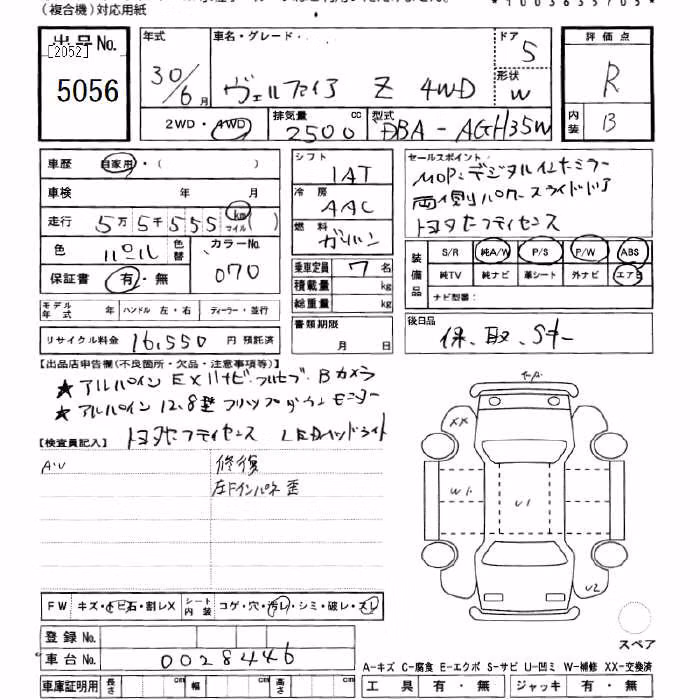 (複合機)対応用紙
出品No.
[2052]
5056
年式 車名・グレード ドア 評価点
30/6月 ヴェルファイア Z 4WD 5 R
形状 W
2WD・4WD 排気量 2500 cc 型式 DBA-AGH35W 内装 B
車歴 自家用・( )
車検 年 月
走行 5万5千555 km マイル( )
色 パール 色替 カラーNo. 070
保証書 有・無
シフト IAT
冷房 AAC
燃料 ガソリン
乗車定員 7名
積載量 kg
総重量 kg
セールスポイント
MOP:デジタルインナーミラー
両側パワースライドドア
トヨタセーフティセンス
装備品 S/R 純A/W P/S P/W ABS
純TV 純ナビ 革シート 外ナビ エアB
ナビ型番:
モデル年式 年 ハンドル 左・右 ディーラー・並行
リサイクル料金 16,550 円 預託済
書類期限 月 日
後日品
保、取、Sキー
【出品店申告欄(不良箇所・欠品・注意事項等)】
★アルパインEX11ナビ・フルセグ・Bカメラ
★アルパイン12.8型フリップダウンモニター
トヨタセーフティセンス LEDヘッドライト
【検査員記入】
A・U 修復
左Fインパネ歪
XX
W1
U1
U2
スペア
FW キズ・トビ石・割レX シート内装 コゲ・穴・汚レ・シミ・破レ・スレ
登録No.
車台No. 0028446
車庫証明用 長さ cm 幅 cm 高さ cm
A-キズ C-腐食 E-エクボ S-サビ U-凹ミ W-補修 XX-交換済
工具 有・無 ジャッキ 有・無